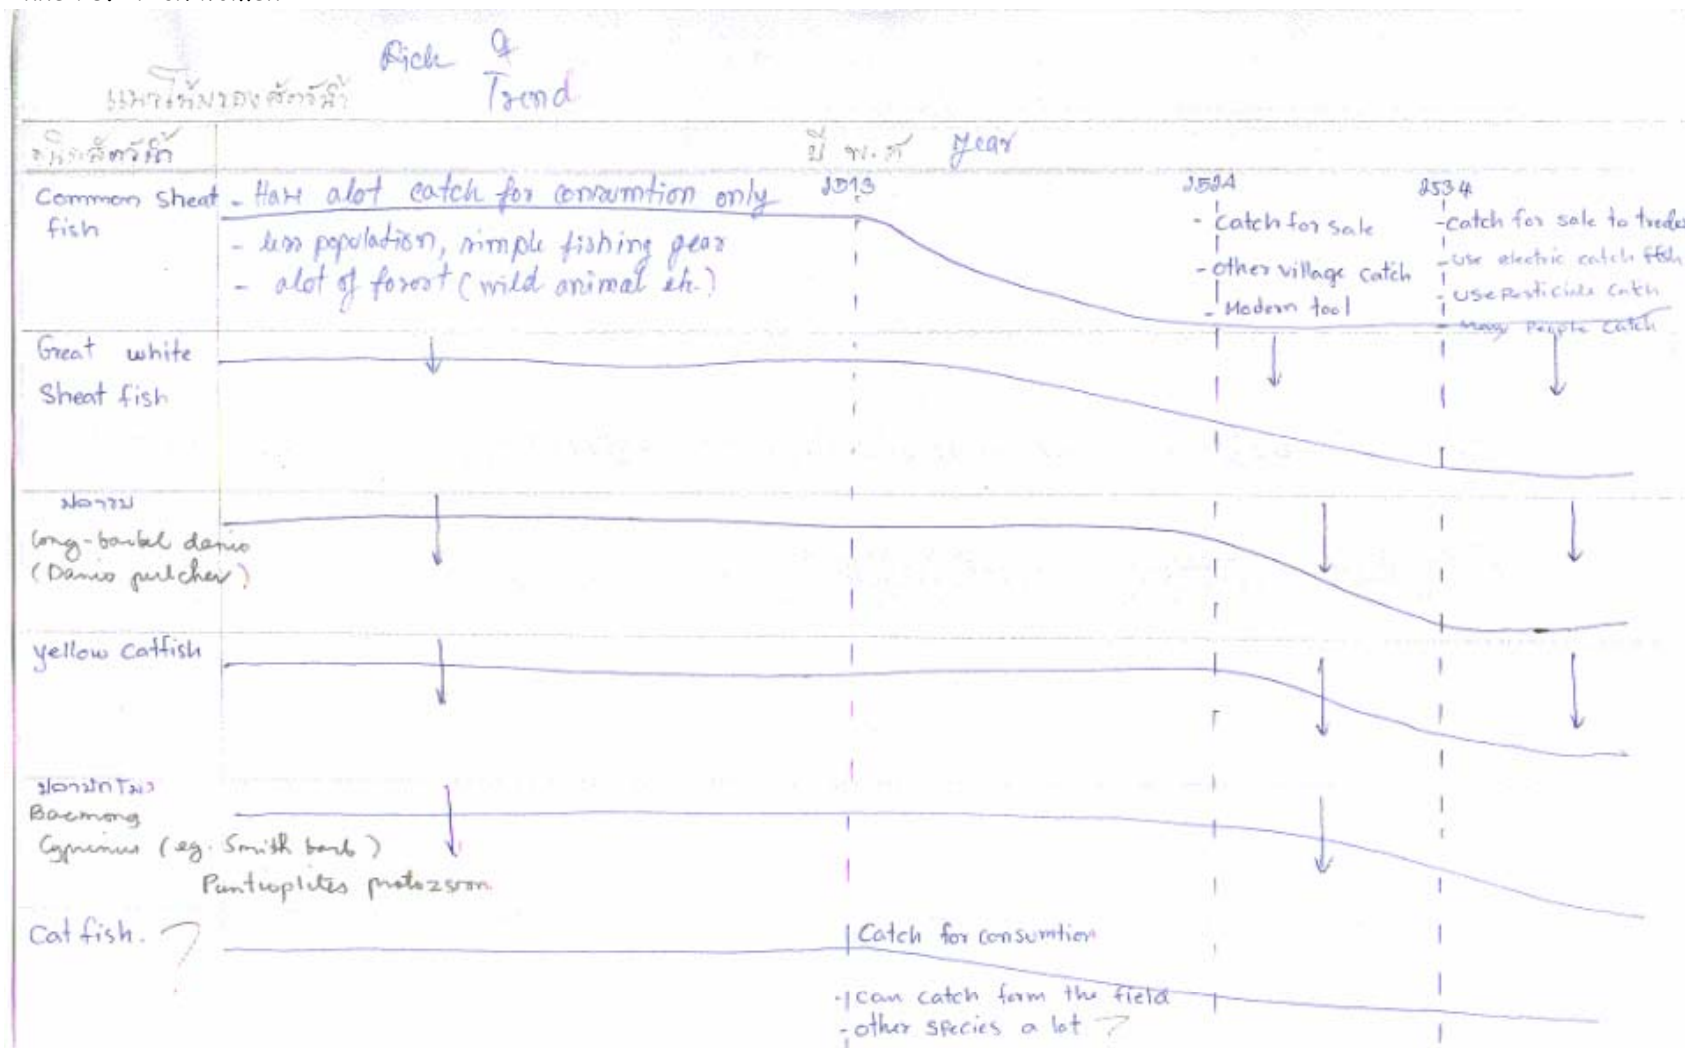 Trend
แนวโน้มของสัตว์น้ำ
ชนิดสัตว์น้ำ
ปี พ.ศ year
2513
2524
2534
Common sheat
fish
- Have alot catch for consumtion only
- less population, simple fishing gear
- alot of forest (wild animal etc.)
- Catch for sale
- Other village catch
- Modern tool
- catch for sale to
- Use electric catch fish
- Use Pesticide Catch
- Many People Catch
Great white
Sheat fish
long-barbel danio
(Danio pulcher)
yellow Catfish
Baemong
Cyprinus (eg. Smith barb)
Puntioplites
Cat fish. ?
Catch for consumtion
- can catch form the field
- other species a lot ?